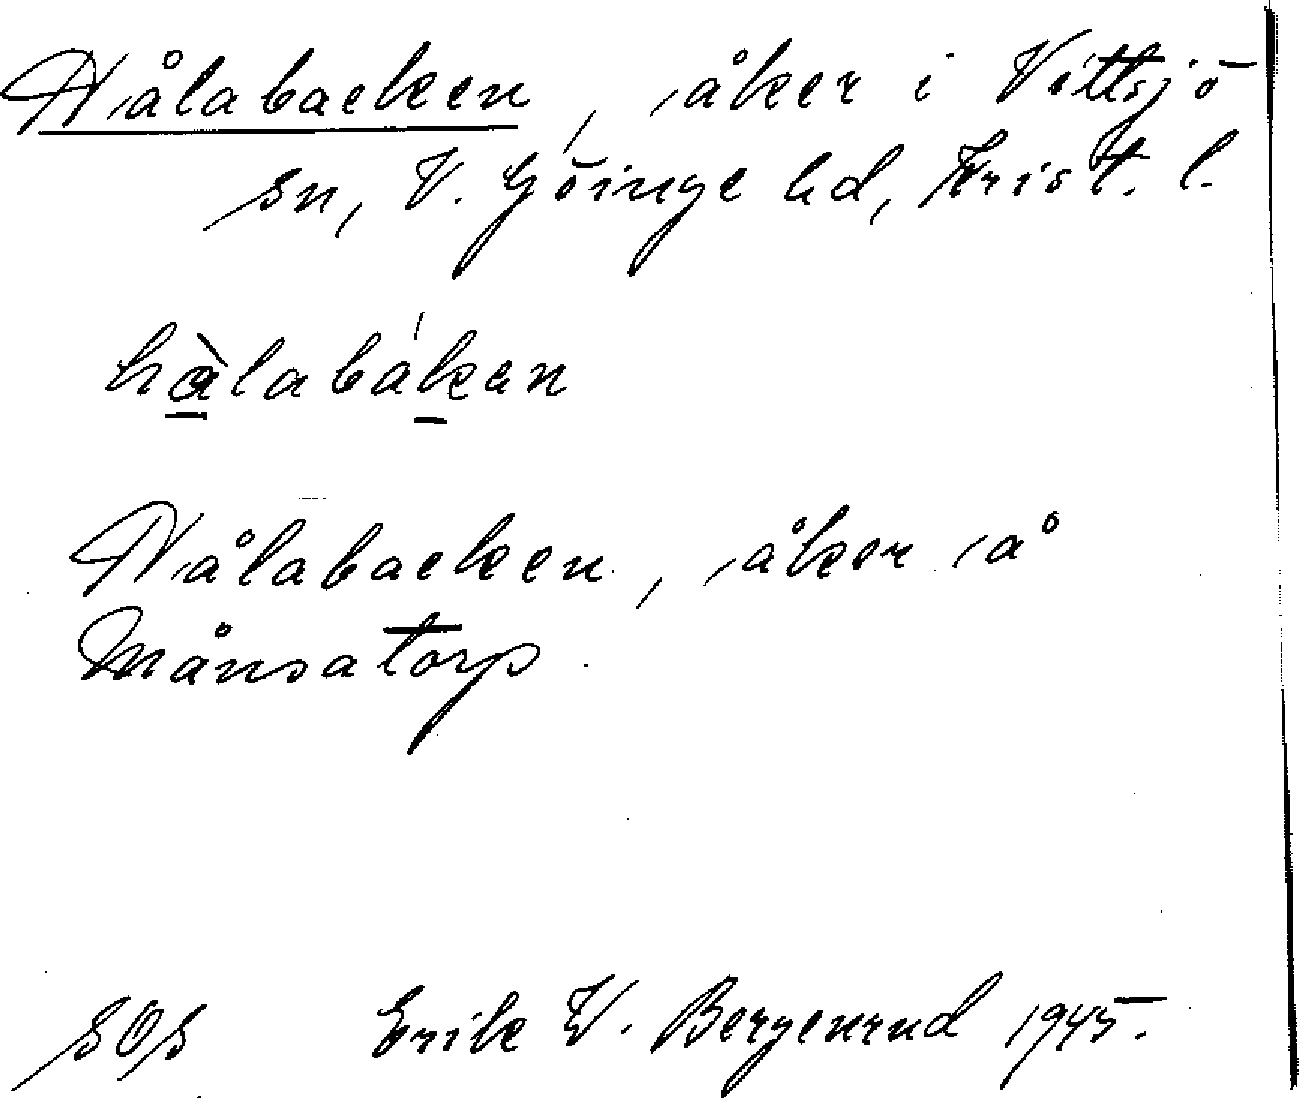 Hålabacken, åker i Vittsjö
sn, V. Göinge hd, Krist. l.
hàlabáken
Hålabacken, åker å
Månsatorp.
SOS Erik W. Bergenrud 1945.